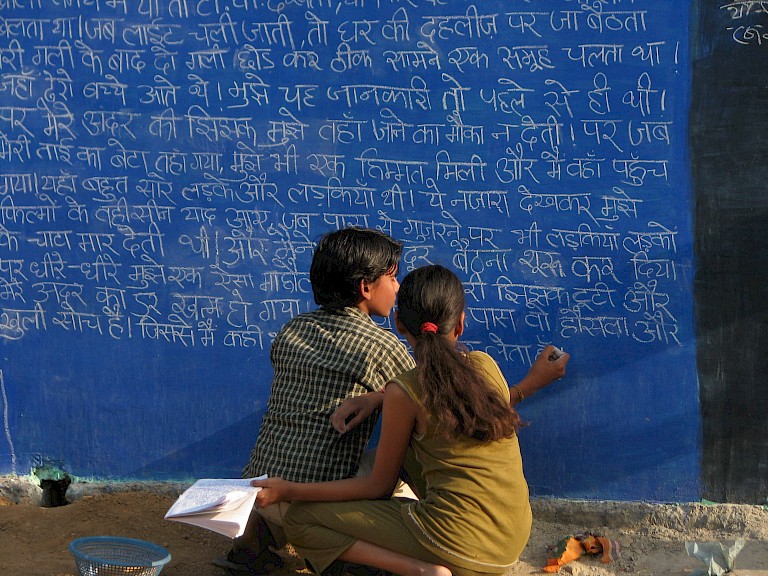 चलता था। जब लाईट चली जाती, तो घर की दहलीज पर जा बैठता
मेरी गली के बाद दो गली छोड़ कर ठीक सामने एक समूह चलता था।
जहाँ ढेरो बच्चे आते थे। मुझे यह जानकारी तो पहले से ही थी।
पर मेरे अन्दर की झिझक मुझे वहाँ जाने का मौका न देती। पर जब
मेरी ताई का बेटा वहाँ गया, मुझे भी एक हिम्मत मिली और मैं वहाँ पहुँच
गया। यहाँ बहुत सारे लड़के और लड़कियाँ थी। ये नजारा देखकर मुझे
फिल्मों के वहीं सीन याद आए, जब पास से गुजरने पर भी लड़कियाँ लड़कों
के चाव मार देती थीं। और बैठना शुरू कर दिया
पर धीरे-धीरे मुझे एक ऐसा
मेरे अन्दर का डर खत्म हो गया झिझक टूटी और
खुली सोच है। जिसमें मैं कही पास वो हौंसला और
लेता